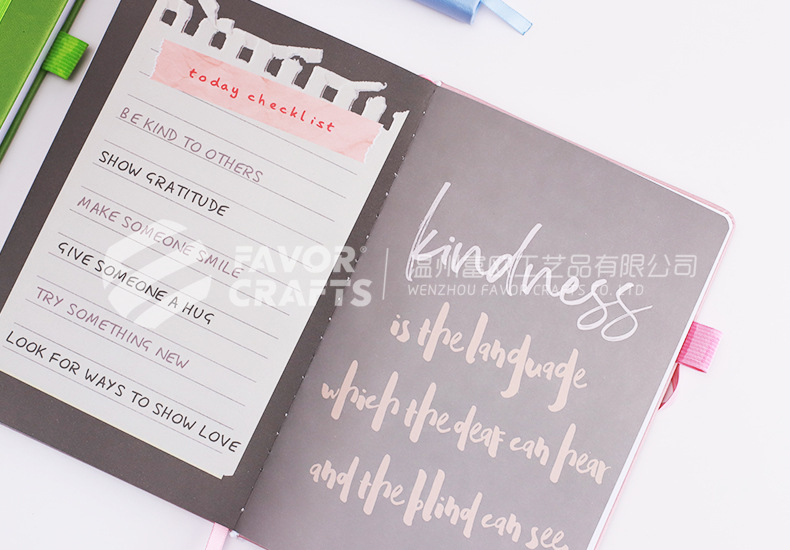 today checklist
BE KIND TO OTHERS
SHOW GRATITUDE
MAKE SOMEONE SMILE
GIVE SOMEONE A HUG
TRY SOMETHING NEW
LOOK FOR WAYS TO SHOW LOVE
kindness
is the language
which the deaf can hear
and the blind can see
FAVOR®
CRAFTS
温州富国工艺品有限公司
WENZHOU FAVOR CRAFTS CO. LTD